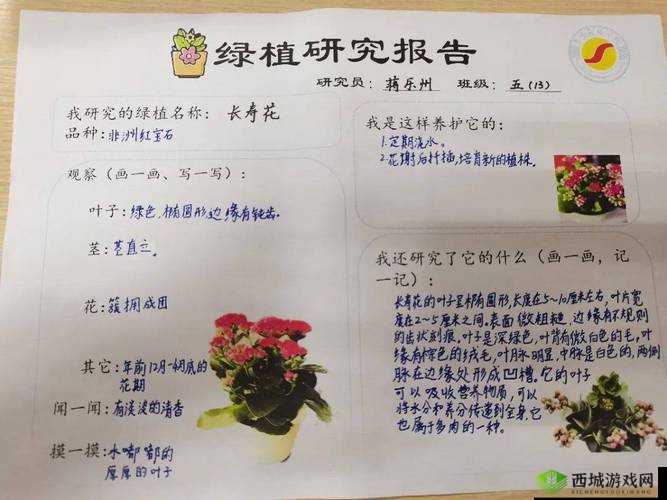 绿植研究报告
研究员：蒋乐州 班级：五（13）
我研究的绿植名称：长寿花
品种：非洲红宝石
观察（画一画、写一写）：
叶子：绿色，椭圆形，边缘有钝齿。
茎：茎直立。
花：簇拥成团
其它：年前12月-4月底的
花期
闻一闻：有淡淡的清香
摸一摸：水嘟嘟的
厚厚的叶子
我是这样养护它的：
1.定期浇水。
2.花期后扦插，培育新的植株。
我还研究了它的什么（画一画，记
一记）：
长寿花的叶子呈椭圆形，长度在5~10厘米左右，叶片宽
度在2~5厘米之间。表面微粗糙，边缘有不规则
的齿状刻痕。叶子是深绿色，叶背有微白色的毛，叶
缘有棕色的绒毛，叶脉明显，中脉是白色的，两侧
脉在边缘处形成凹槽。它的叶子
可以吸收营养物质，可以
将水分和养分传递到全身，它
也属于多肉的一种。
西城游戏网